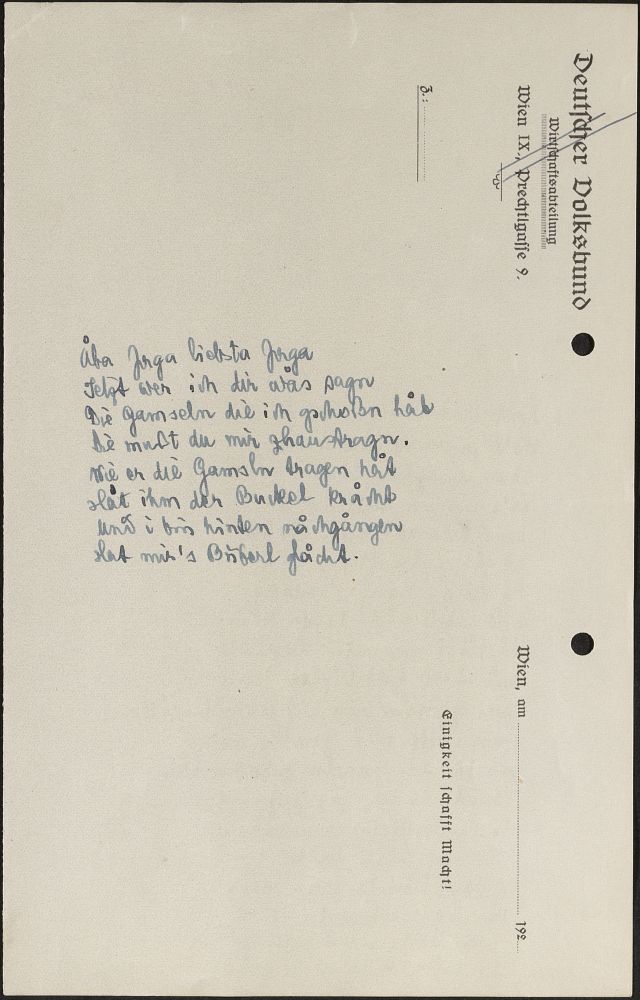 Deutscher Volksbund
Wirtschaftsabteilung
Wien IX., Prechtlgasse 9.
Z.:
Wien, am 192
Einigkeit schafft Macht!
Åba Jerga liebsta Jerga
Jetzt wer ich dir wås sagn
Die Gamseln die i ch gschoßn håb
Die mußt du mir zhaustragn.
Wie er die Gamsln tragen håt
slåt ihm der Buckel kråcht
Und i bin hinten nåchgången
slat mir's Büberl glåcht.